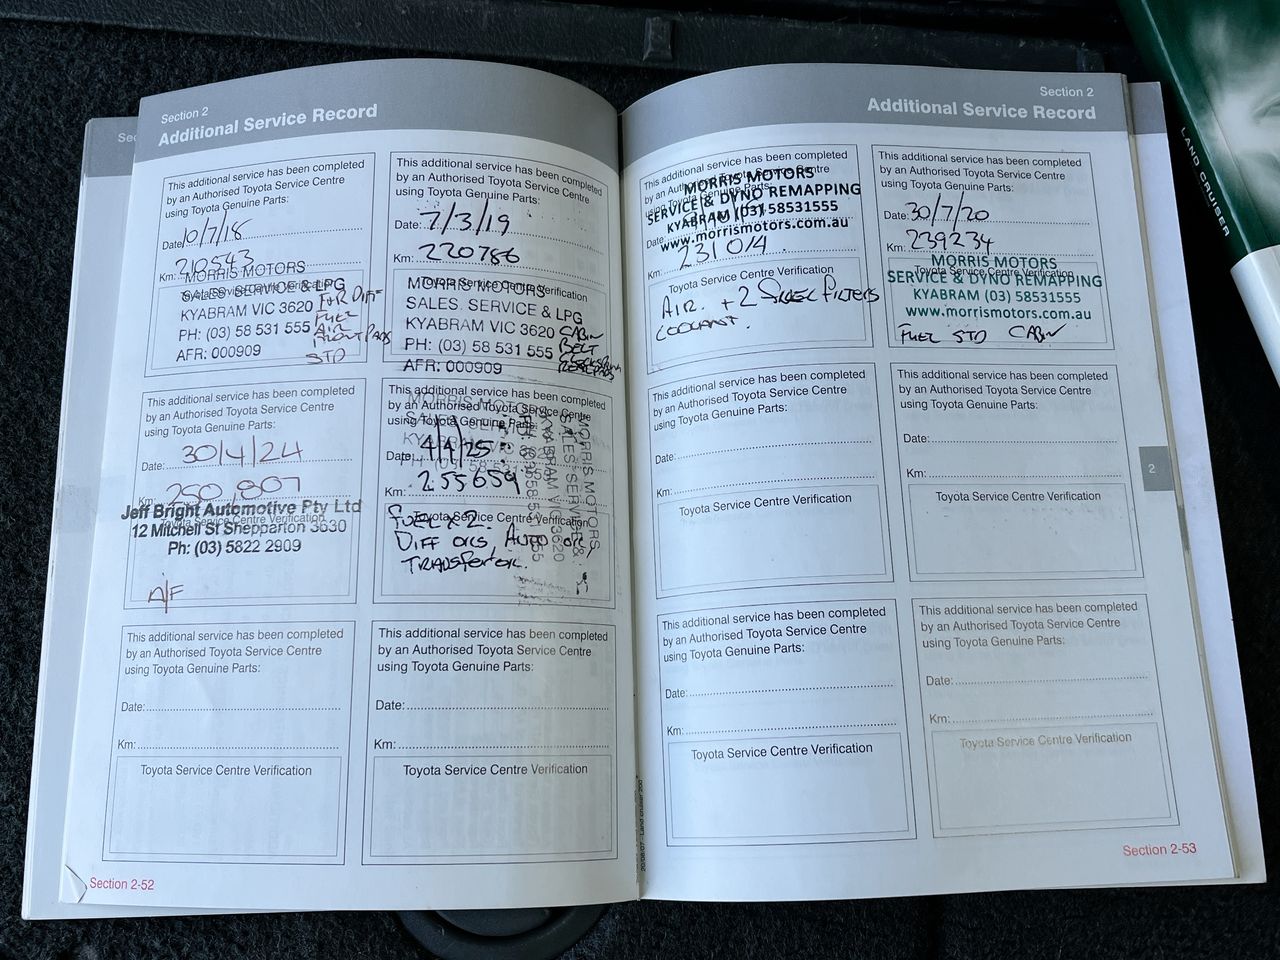 Section 2
Additional Service Record
This additional service has been completed
by an Authorised Toyota Service Centre
using Toyota Genuine Parts:
Date: 10/7/18
Km: 210543
MORRIS MOTORS
SALES SERVICE & LPG
KYABRAM VIC 3620
PH: (03) 58 531 555
AFR: 000909
F+R DIFF
FUEL
AIR
FRONT PADS
STD
This additional service has been completed
by an Authorised Toyota Service Centre
using Toyota Genuine Parts:
Date: 7/3/19
Km: 220786
Toyota Service Centre Verification
MORRIS MOTORS
SALES. SERVICE & LPG
KYABRAM VIC 3620
PH: (03) 58 531 555
AFR: 000909
CABIN
BELT
REAR PADS
This additional service has been completed
by an Authorised Toyota Service Centre
using Toyota Genuine Parts:
Date: 30/4/24
Km: 250,807
Toyota Service Centre Verification
Jeff Bright Automotive Pty Ltd
12 Mitchell St Shepparton 3630
Ph: (03) 5822 2909
A/F
This additional service has been completed
by an Authorised Toyota Service Centre
using Toyota Genuine Parts:
Date: 4/4/25
Km: 255659
Toyota Service Centre Verification
FUEL x 2.
DIFF OILS, AUTO OIL,
TRANSFER OIL.
MORRIS MOTORS
SALES SERVICE &
KYABRAM VIC 3620
This additional service has been completed
by an Authorised Toyota Service Centre
using Toyota Genuine Parts:
Date:
Km:
Toyota Service Centre Verification
This additional service has been completed
by an Authorised Toyota Service Centre
using Toyota Genuine Parts:
Date:
Km:
Toyota Service Centre Verification
Section 2-52
Section 2
Additional Service Record
This additional service has been completed
by an Authorised Toyota Service Centre
MORRIS MOTORS
SERVICE & DYNO REMAPPING
KYABRAM (03) 58531555
www.morrismotors.com.au
Date:
Km: 231014
Toyota Service Centre Verification
AIR. + 2 FUEL FILTERS
COOLANT.
This additional service has been completed
by an Authorised Toyota Service Centre
using Toyota Genuine Parts:
Date: 30/7/20
Km: 239234
Toyota Service Centre Verification
MORRIS MOTORS
SERVICE & DYNO REMAPPING
KYABRAM (03) 58531555
www.morrismotors.com.au
FUEL STD CABIN
This additional service has been completed
by an Authorised Toyota Service Centre
using Toyota Genuine Parts:
Date:
Km:
Toyota Service Centre Verification
This additional service has been completed
by an Authorised Toyota Service Centre
using Toyota Genuine Parts:
Date:
Km:
Toyota Service Centre Verification
This additional service has been completed
by an Authorised Toyota Service Centre
using Toyota Genuine Parts:
Date:
Km:
Toyota Service Centre Verification
This additional service has been completed
by an Authorised Toyota Service Centre
using Toyota Genuine Parts:
Date:
Km:
Toyota Service Centre Verification
Section 2-53
2
LAND CRUISER